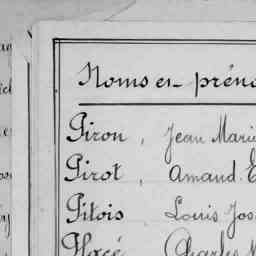 Noms et prén
Piron, Jean Mari
Pirot, Amand. E
Pitois Louis Jos
Placé Charles